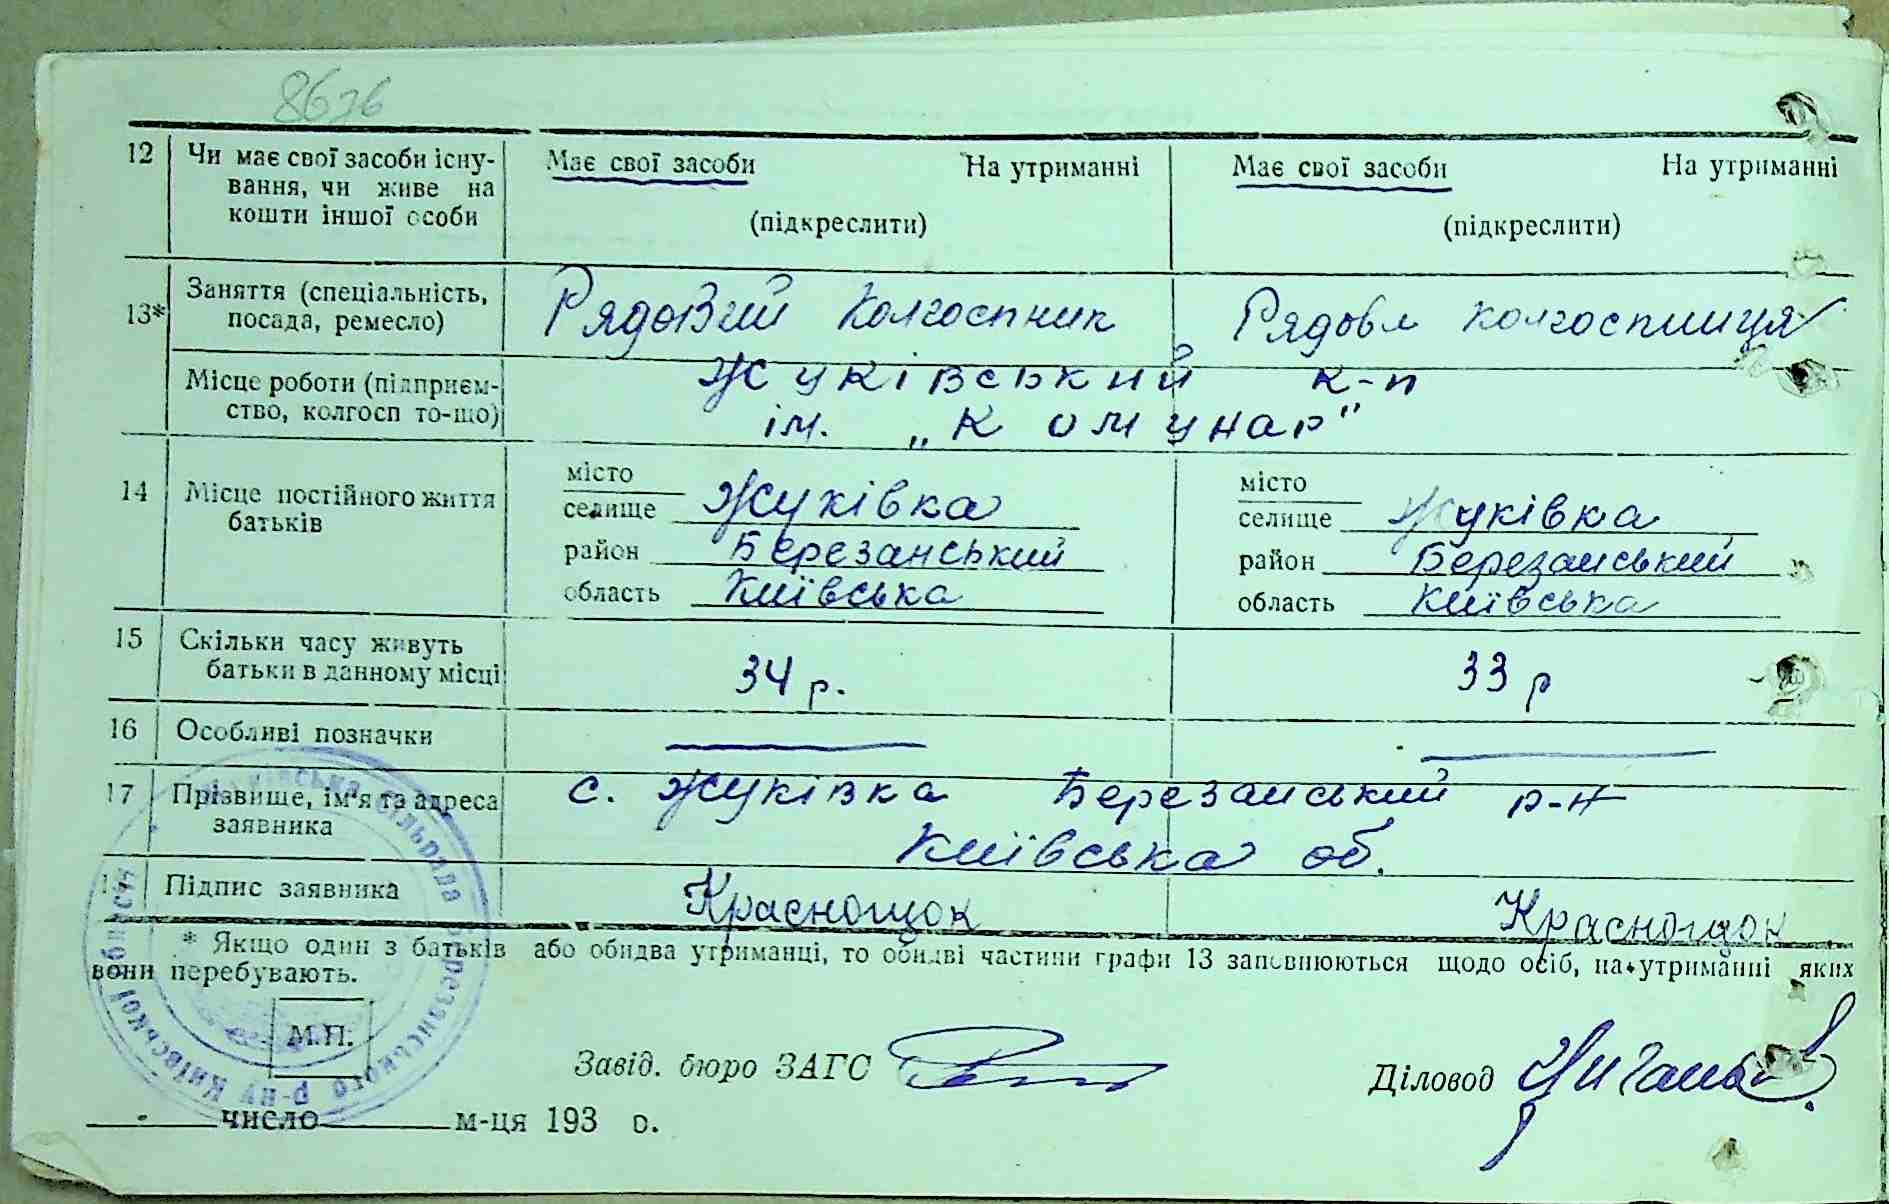 8676
12 Чи має свої засоби існу- Має свої засоби На утриманні Має свої засоби На утриманні
вання, чи живе на
кошти іншої особи (підкреслити) (підкреслити)
13* Заняття (спеціальність, Рядовий колгоспник Рядова колгоспниця
посада, ремесло)
Місце роботи (підприєм- Жуківський к-п
ство, колгосп то-що) ім. „Комунар"
14 Місце постійного життя місто місто
батьків селище Жуківка селище Жуківка
район Березанський район Березанський
область Київська область Київська
15 Скільки часу живуть
батьки в данному місці 34 р. 33 р
16 Особливі позначки
17 Прізвище, ім'я та адреса с. Жуківка Березанський р-н
заявника Київська об.
Підпис заявника Краснощок Краснощок
* Якщо один з батьків або обидва утриманці, то обидві частини графи 13 заповнюються щодо осіб, на утриманні яких
вони перебувають.
М.П.
Завід. бюро ЗАГС Діловод
число м-ця 193 р.
сільрада Березанського р-ну Київської області